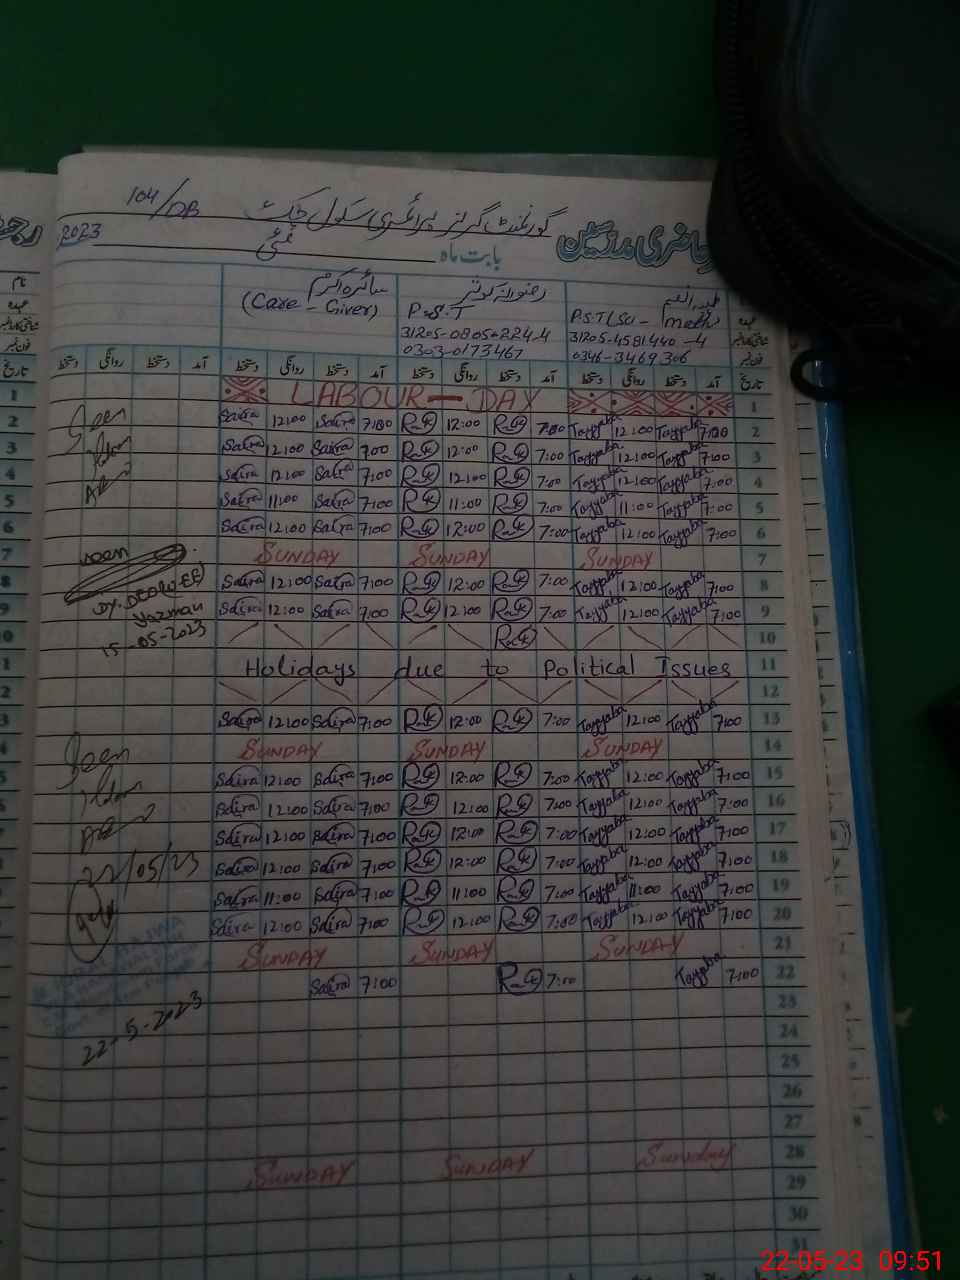 104/DB گورنمنٹ گرلز پرائمری سکول چک
حاضری مدرسین
2023 بابت ماہ مئی
سائرہ اکرم
(Care - Giver)
رضوانہ کوثر
P.S.T
31205-0805224-4
0303-0173467
P.S.T (SU - Math)
31205-4581440-4
0346-3469306
تاریخ آمد دستخط روانگی دستخط آمد دستخط روانگی دستخط آمد دستخط روانگی دستخط تاریخ
1 LABOUR - DAY 1
2 Saira 12:00 Saira 7:00 12:00 7:00 Tayyaba 12:00 Tayyaba 7:00 2
3 Saira 12:00 Saira 7:00 12:00 7:00 Tayyaba 12:00 Tayyaba 7:00 3
4 Saira 12:00 Saira 7:00 12:00 7:00 Tayyaba 12:00 Tayyaba 7:00 4
5 Saira 11:00 Saira 7:00 11:00 7:00 Tayyaba 11:00 Tayyaba 7:00 5
6 Saira 12:00 Saira 7:00 12:00 7:00 Tayyaba 12:00 Tayyaba 7:00 6
7 SUNDAY SUNDAY SUNDAY 7
8 Saira 12:00 Saira 7:00 12:00 7:00 Tayyaba 12:00 Tayyaba 7:00 8
9 Saira 12:00 Saira 7:00 12:00 7:00 Tayyaba 12:00 Tayyaba 7:00 9
10
Holidays due to Political Issues 11
12
Saira 12:00 Saira 7:00 12:00 7:00 Tayyaba 12:00 Tayyaba 7:00 13
SUNDAY SUNDAY SUNDAY 14
Saira 12:00 Saira 7:00 12:00 7:00 Tayyaba 12:00 Tayyaba 7:00 15
Saira 12:00 Saira 7:00 12:00 7:00 Tayyaba 12:00 Tayyaba 7:00 16
Saira 12:00 Saira 7:00 12:00 7:00 Tayyaba 12:00 Tayyaba 7:00 17
Saira 12:00 Saira 7:00 12:00 7:00 Tayyaba 12:00 Tayyaba 7:00 18
Saira 11:00 Saira 7:00 11:00 7:00 Tayyaba 11:00 Tayyaba 7:00 19
Saira 12:00 Saira 7:00 12:00 7:00 Tayyaba 12:00 Tayyaba 7:00 20
SUNDAY SUNDAY SUNDAY 21
Saira 7:00 7:00 Tayyaba 7:00 22
23
24
25
26
27
SUNDAY SUNDAY Sunday 28
29
30
31
Seen
Seen
Yazman
15-05-2023
Seen
22/05/23
22-5-2023
22-05-23 09:51